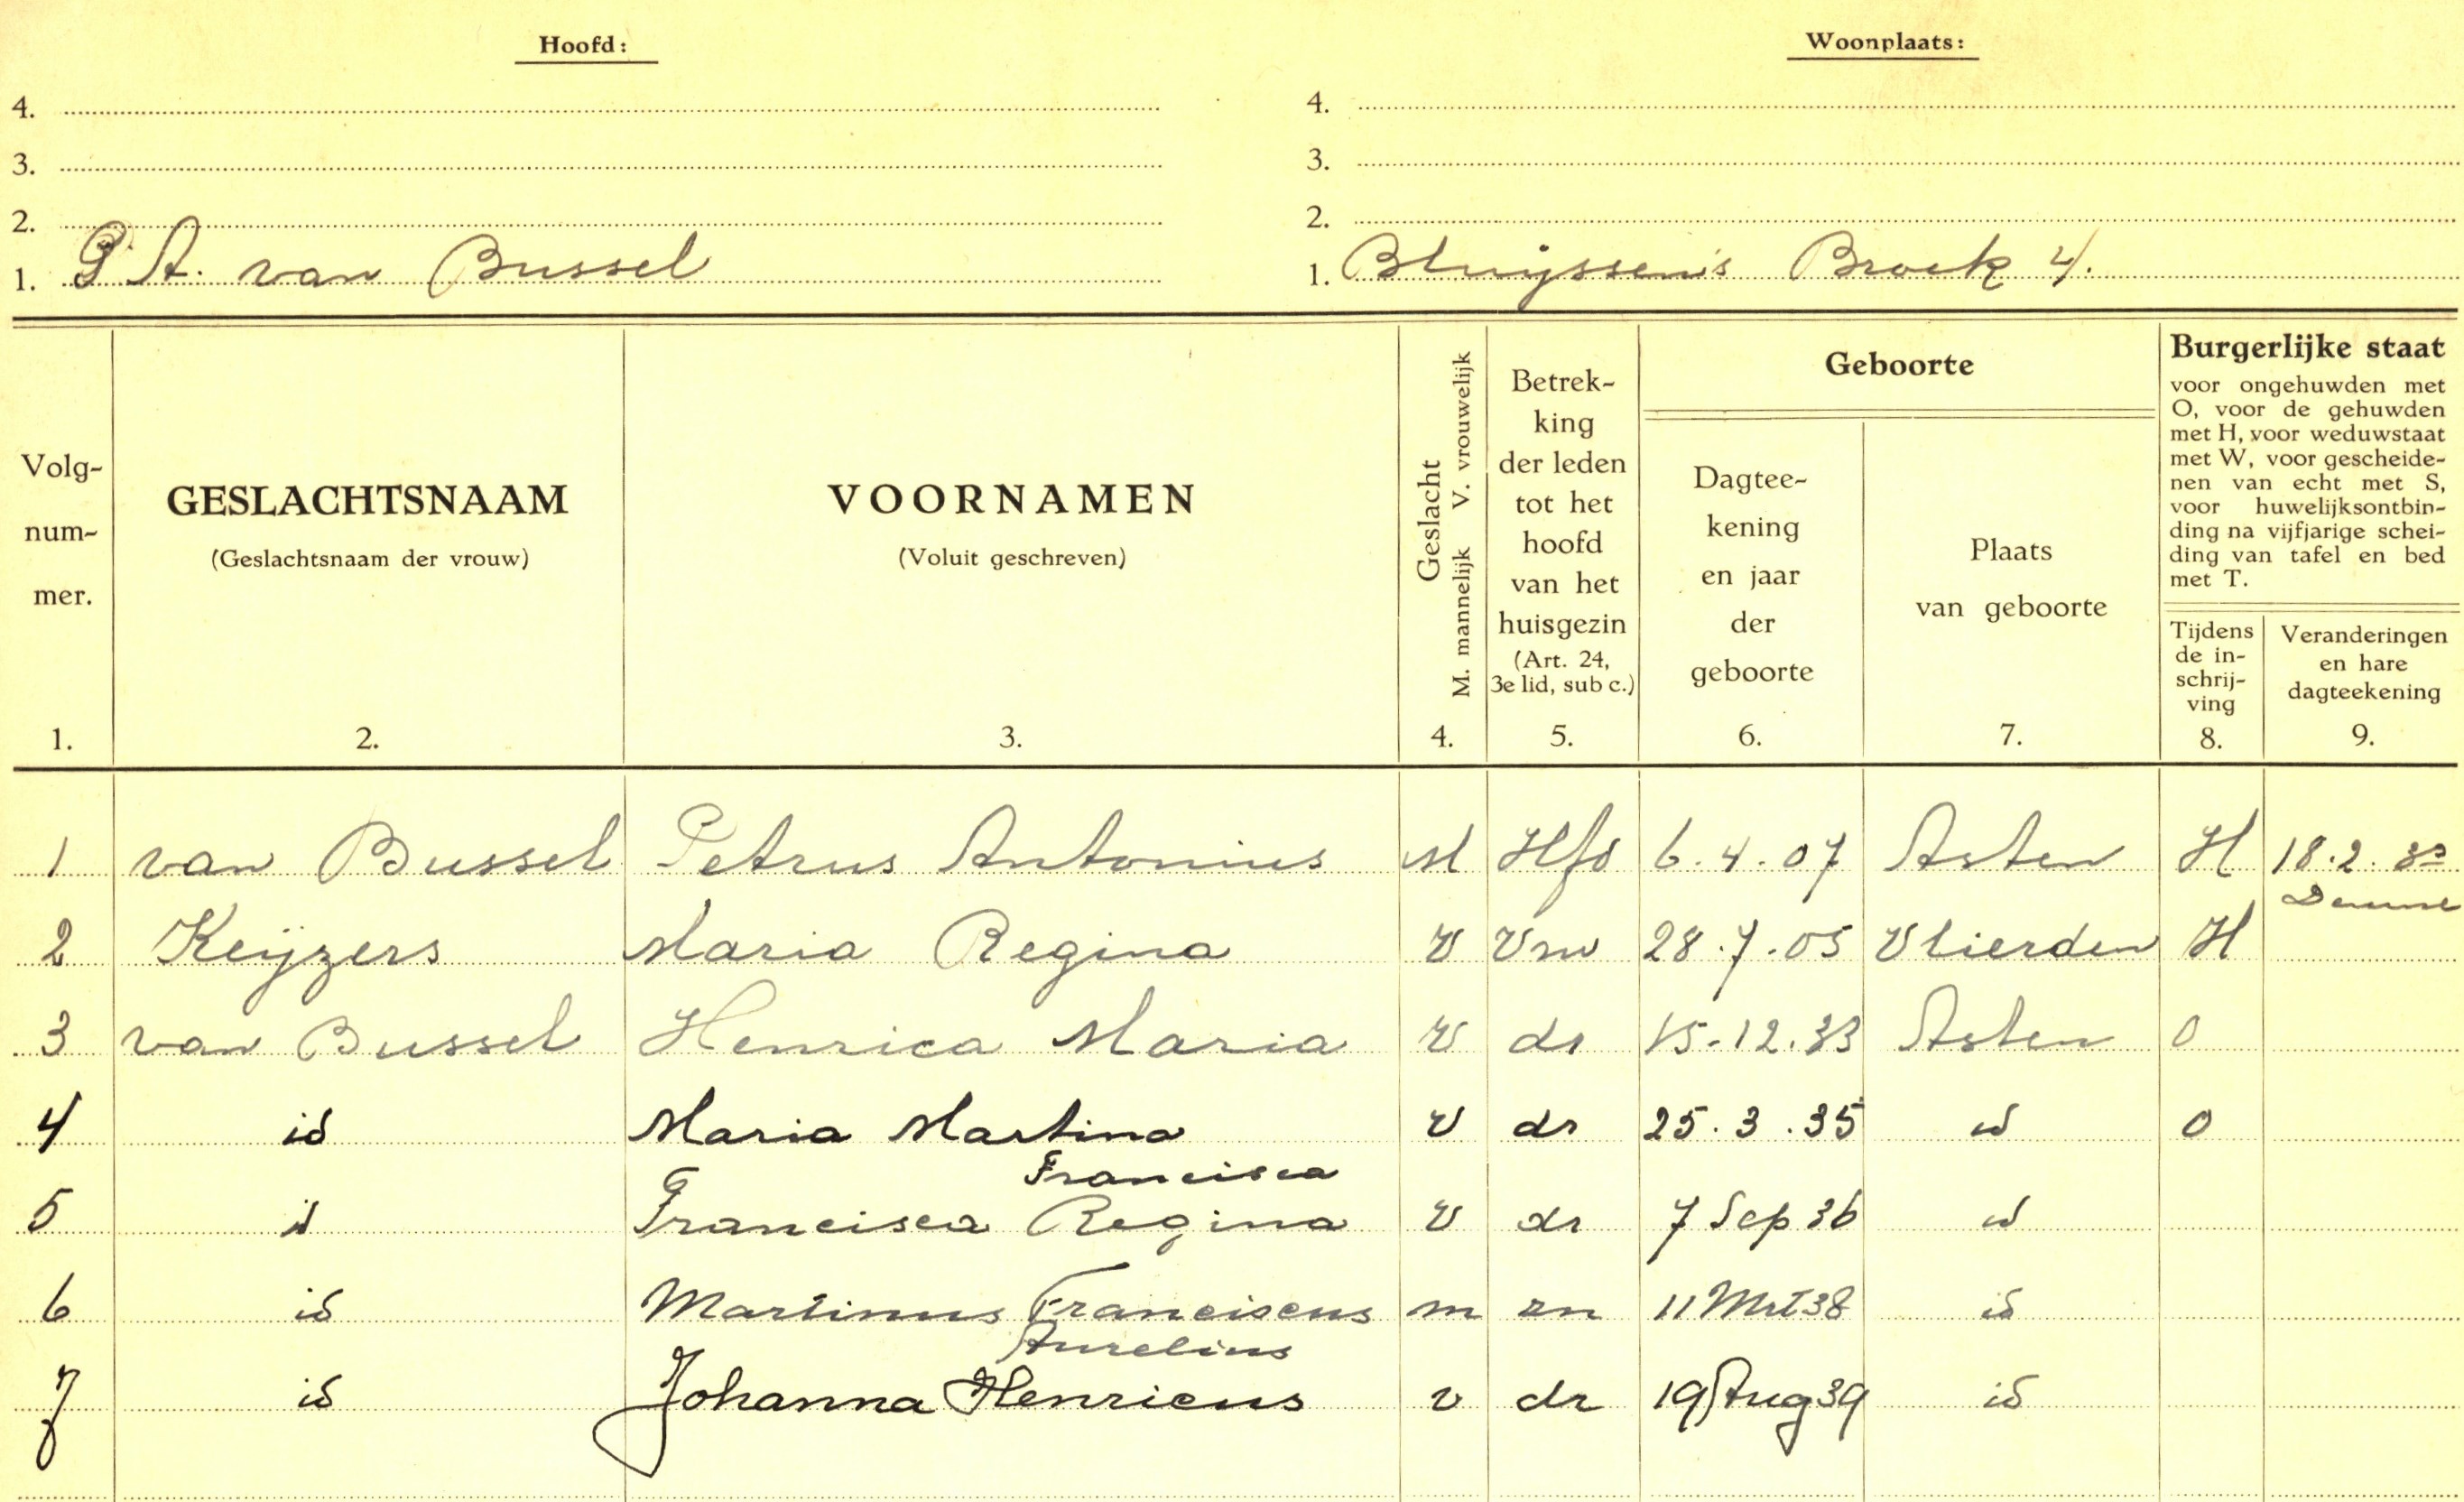 Hoofd:
4.
3.
2.
1. P. A. van Bussel
Woonplaats:
4.
3.
2.
1. Bluyssen's Broek 4.
Volg-
num-
mer.
1.
GESLACHTSNAAM
(Geslachtsnaam der vrouw)
2.
VOORNAMEN
(Voluit geschreven)
3.
Geslacht
M. mannelijk V. vrouwelijk
4.
Betrek-
king
der leden
tot het
hoofd
van het
huisgezin
(Art. 24,
3e lid, sub c.)
5.
Geboorte
Dagtee-
kening
en jaar
der
geboorte
6.
Plaats
van geboorte
7.
Burgerlijke staat
voor ongehuwden met
O, voor de gehuwden
met H, voor weduwstaat
met W, voor gescheide-
nen van echt met S,
voor huwelijksontbin-
ding na vijfjarige schei-
ding van tafel en bed
met T.
Tijdens
de in-
schrij-
ving
8.
Veranderingen
en hare
dagteekening
9.
1 van Bussel Petrus Antonius M Hfd 6.4.07 Asten H 18.2.33
Deurne
2 Keijzers Maria Regina V Vrw 28.7.05 Vlierden H
3 van Bussel Henrica Maria V dr 15-12.33 Asten O
4 id Maria Martina V dr 25.3.35 id O
Francisca
5 id Francisca Regina V dr 7 Sep 36 id
6 id Martinus Franciscus m zn 11 Mrt 38 id
Aurelius
7 id Johanna Henricus v dr 19 Aug 39 id